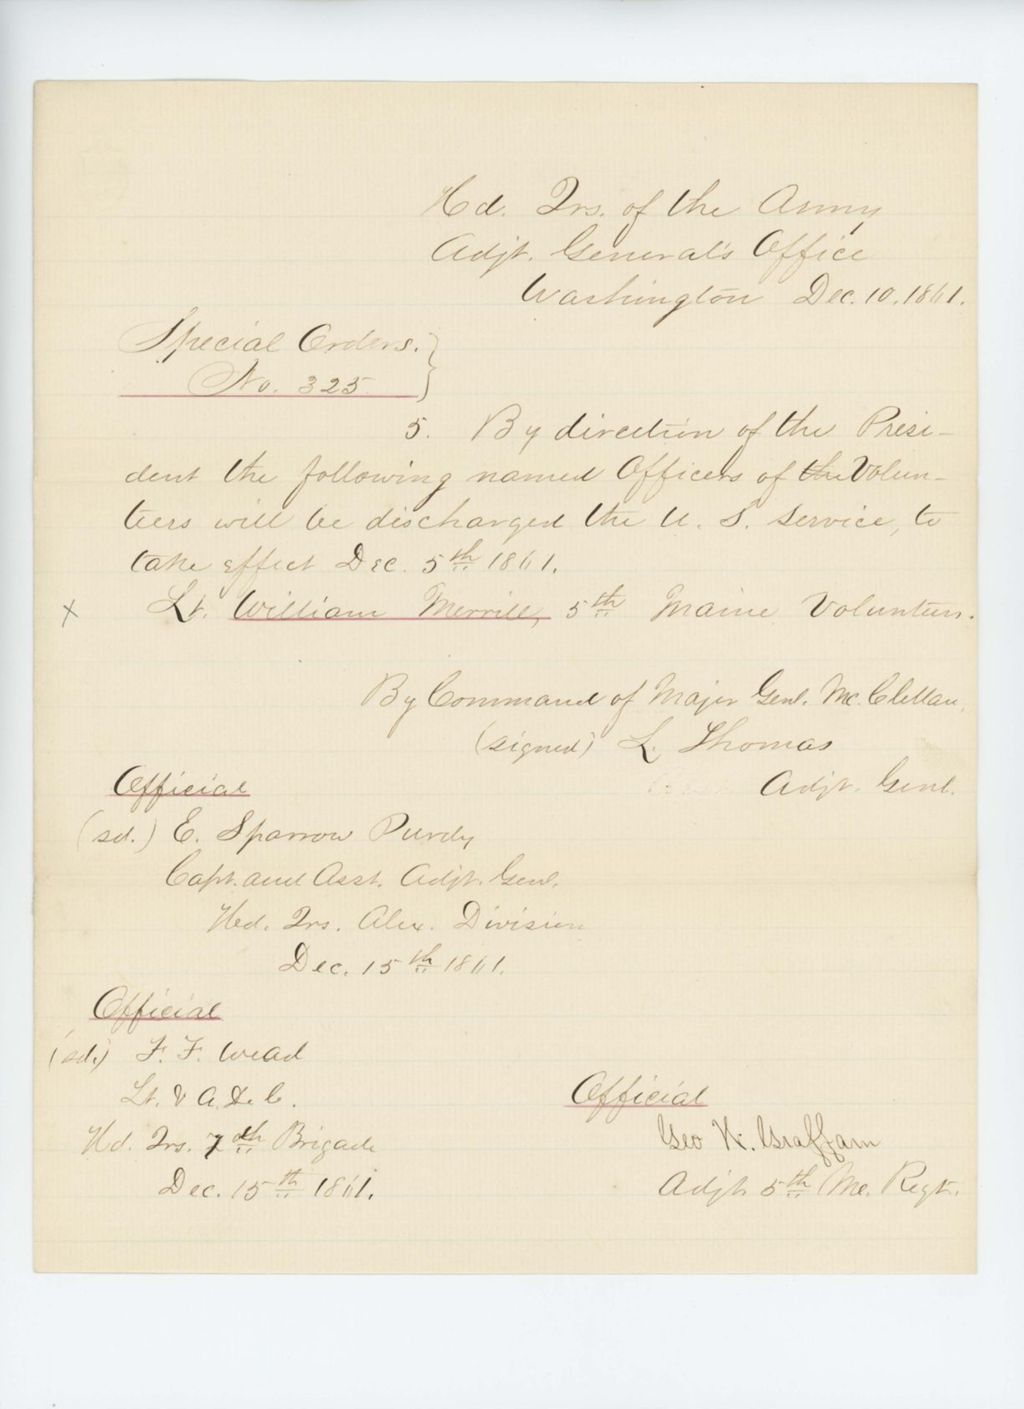 Hd. Qrs. of the Army
Adjt. General's Office
Washington Dec. 10, 1861.
Special Orders. }
No. 325 }
5. By direction of the Presi-
dent the following named Officers of the Volun-
teers will be discharged the U. S. Service, to
take effect Dec. 5th 1861.
x Lt. William Merrill, 5th Maine Volunteers.
By Command of Major Genl. McClellan,
(signed) L. Thomas
Adjt. Genl.
Official
(sd.) E. Sparrow Purdy
Capt. and Asst. Adjt. Genl.
Hed. Qrs. Alex. Division
Dec. 15th 1861.
Official
(sd.) F. F. Wead
Lt. & A. De C.
Hd. Qrs. Brigade
Dec. 15th 1861.
Official
Geo W. Graffam
Adjt. 5th Me. Regt.